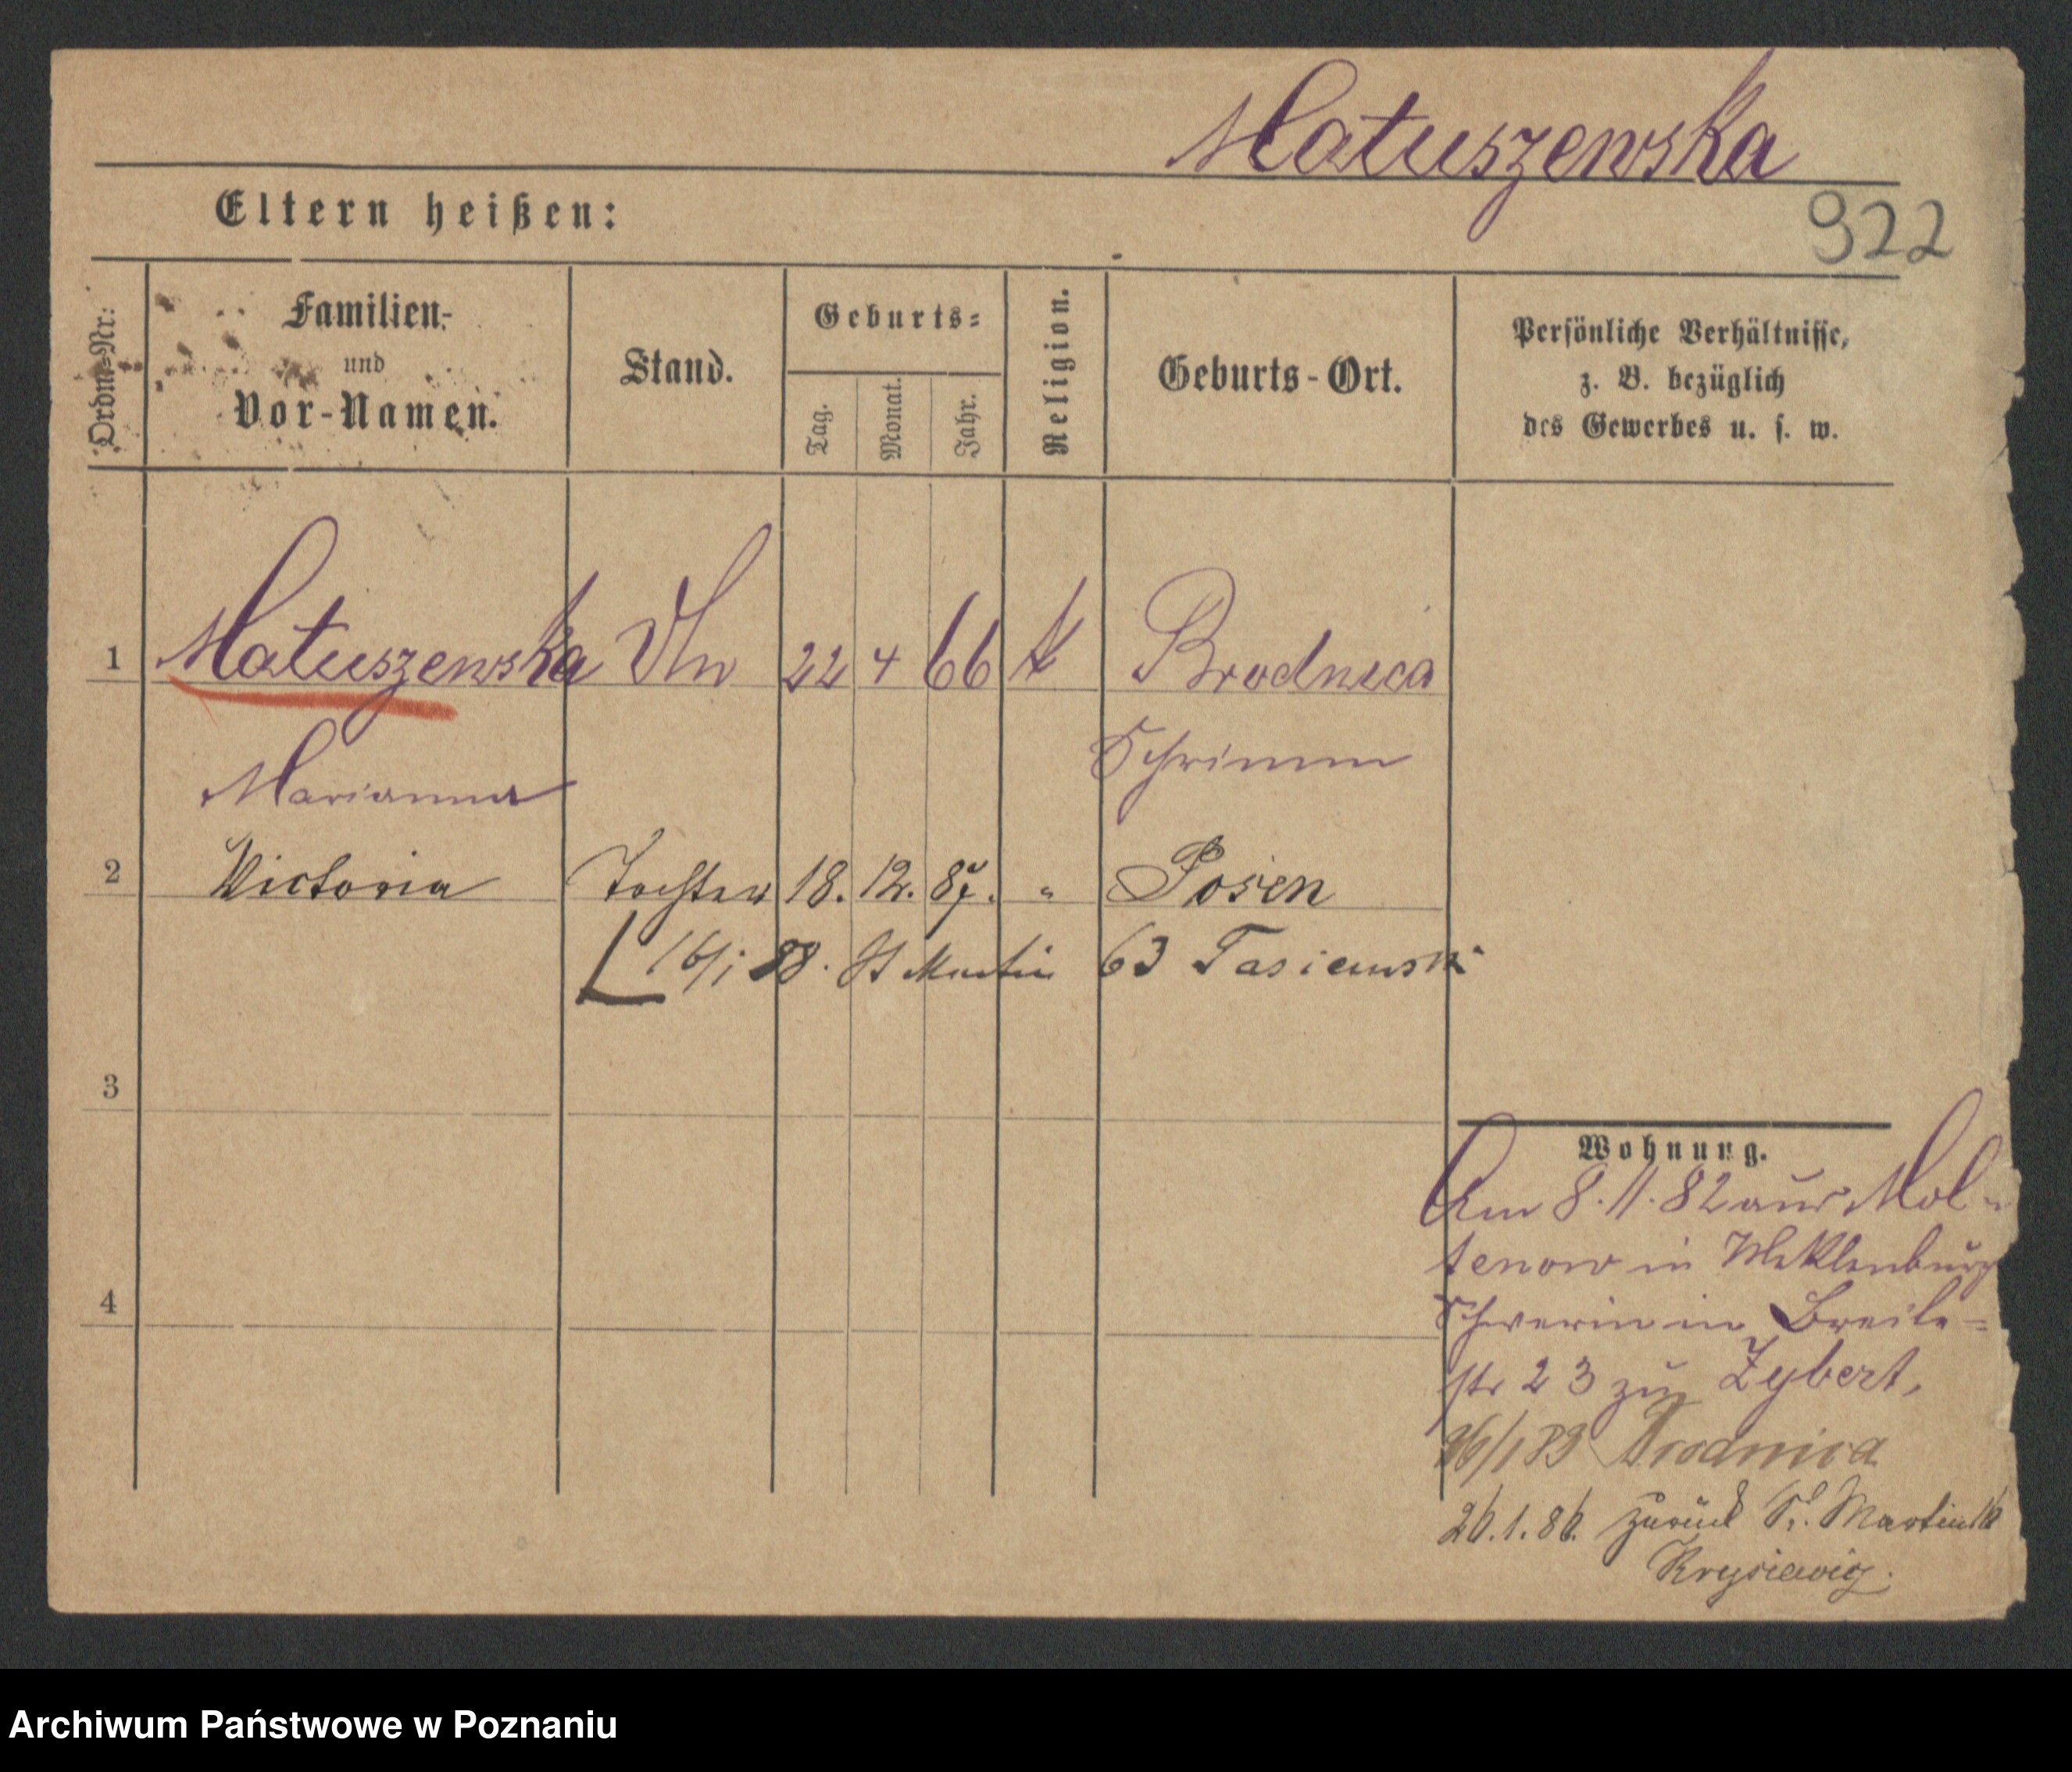 Matuszewska
Eltern heißen:
922
Ordm=Nr:
Familien-
und
Vor-Namen.
Stand.
Geburts=
Tag.
Monat.
Jahr.
Religion.
Geburts-Ort.
Persönliche Verhältnisse,
z. B. bezüglich
des Gewerbes u. s. w.
1 Matuszewska 22 4 66 k Brodnica
Marianna Schrimm
2 Victoria Tochter 18. 12. 87. " Posen
16/1 88. St Martin 63 Tasiemski
3
4
Wohnung.
Am 8.11.82 aus Mol-
tenow in Meklenburg
Schwerin in Breite=
str 23 zu Zybert,
26/1 83 Brodnica
26.1.86. zurück St. Martin 16
Krysiewicz.
Archiwum Państwowe w Poznaniu